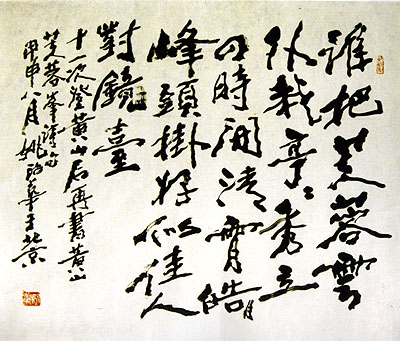 誰把芙蓉雲
外栽亭々秀立
四時開清宵皓月
峰頭掛好似佳人
對鏡臺
十一次登黃山后再書黃山
芙蓉峯詩句
甲申八月姚治華于北京